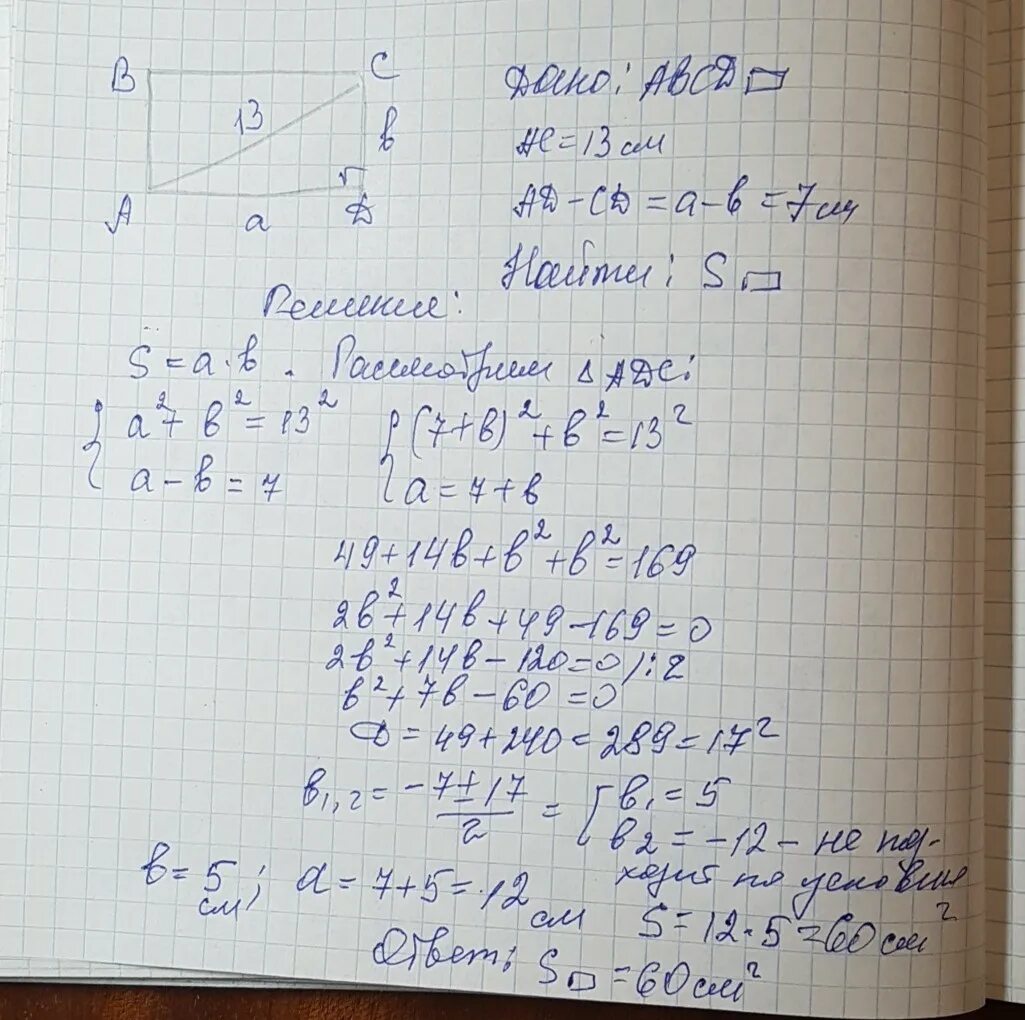 B C Дано: ABCD ▭
13 в AC = 13 см
A a D AD – CD = a – в = 7 см
Найти: S▭
Решение:
S = a · в. Рассмотрим △ ADC:
{ a² + в² = 13² { (7 + в)² + в² = 13²
a – в = 7 a = 7 + в
49 + 14в + в² + в² = 169
2в² + 14в + 49 – 169 = 0
2в² + 14в – 120 = 0 /: 2
в² + 7в – 60 = 0
D = 49 + 240 = 289 = 17²
в₁,₂ = (–7 ± 17)/2 = [ в₁ = 5
в₂ = –12 – не под-
ходит по условию
в = 5 см; a = 7 + 5 = 12 см S = 12 · 5 = 60 см²
Ответ: S▭ = 60 см²